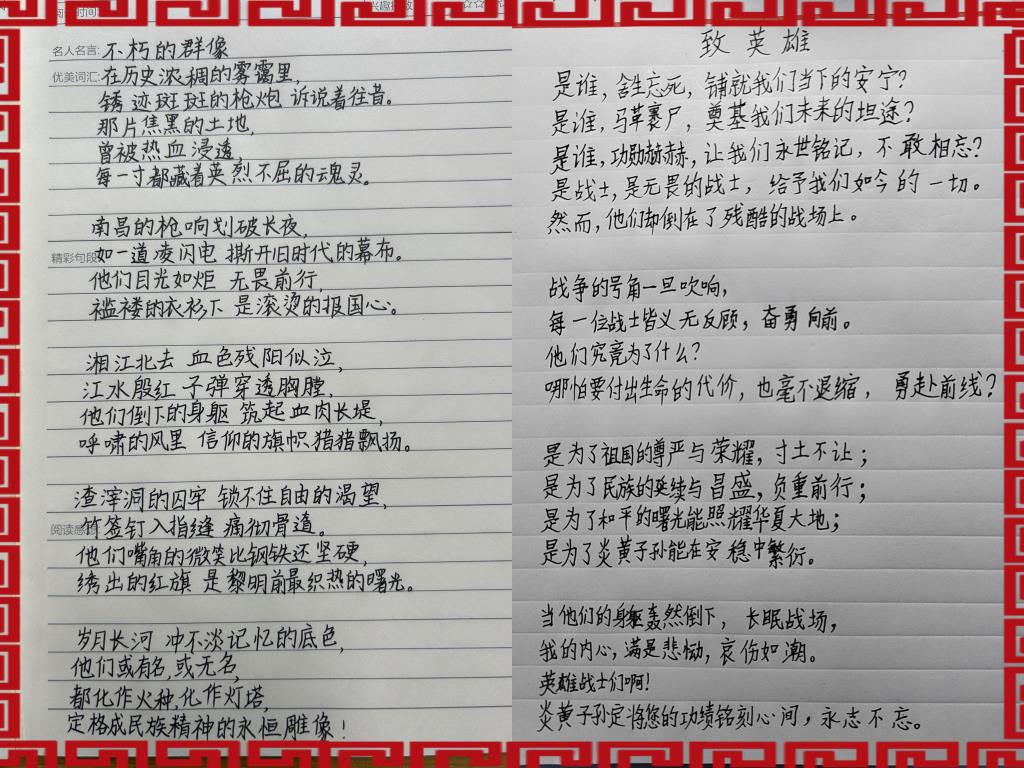 名人名言:不朽的群像
优美词汇:在历史浓稠的雾霭里,
锈迹斑斑的枪炮 诉说着往昔。
那片焦黑的土地,
曾被热血浸透,
每一寸都藏着英烈不屈的魂灵。
南昌的枪响划破长夜,
精彩句段:如一道凌闪电 撕开旧时代的幕布。
他们目光如炬 无畏前行,
褴褛的衣衫下 是滚烫的报国心。
湘江北去 血色残阳似泣,
江水殷红 子弹穿透胸膛,
他们倒下的身躯 筑起血肉长堤,
呼啸的风里 信仰的旗帜猎猎飘扬。
渣滓洞的囚牢 锁不住自由的渴望,
阅读感 竹签钉入指缝 痛彻骨道。
他们嘴角的微笑比钢铁还坚硬,
绣出的红旗 是黎明前最炽热的曙光。
岁月长河 冲不淡记忆的底色,
他们或有名,或无名,
都化作火种,化作灯塔,
定格成民族精神的永恒雕像!
致英雄
是谁,舍生忘死,铺就我们当下的安宁?
是谁,马革裹尸,奠基我们未来的坦途?
是谁,功勋赫赫,让我们永世铭记,不敢相忘?
是战士,是无畏的战士,给予我们如今的一切。
然而,他们却倒在了残酷的战场上。
战争的号角一旦吹响,
每一位战士皆义无反顾,奋勇向前。
他们究竟为了什么?
哪怕要付出生命的代价,也毫不退缩,勇赴前线?
是为了祖国的尊严与荣耀,寸土不让;
是为了民族的延续与昌盛,负重前行;
是为了和平的曙光能照耀华夏大地;
是为了炎黄子孙能在安稳中繁衍。
当他们的身躯轰然倒下,长眠战场,
我的内心,满是悲恸,哀伤如潮。
英雄战士们啊!
炎黄子孙定将您的功绩铭刻心间,永志不忘。